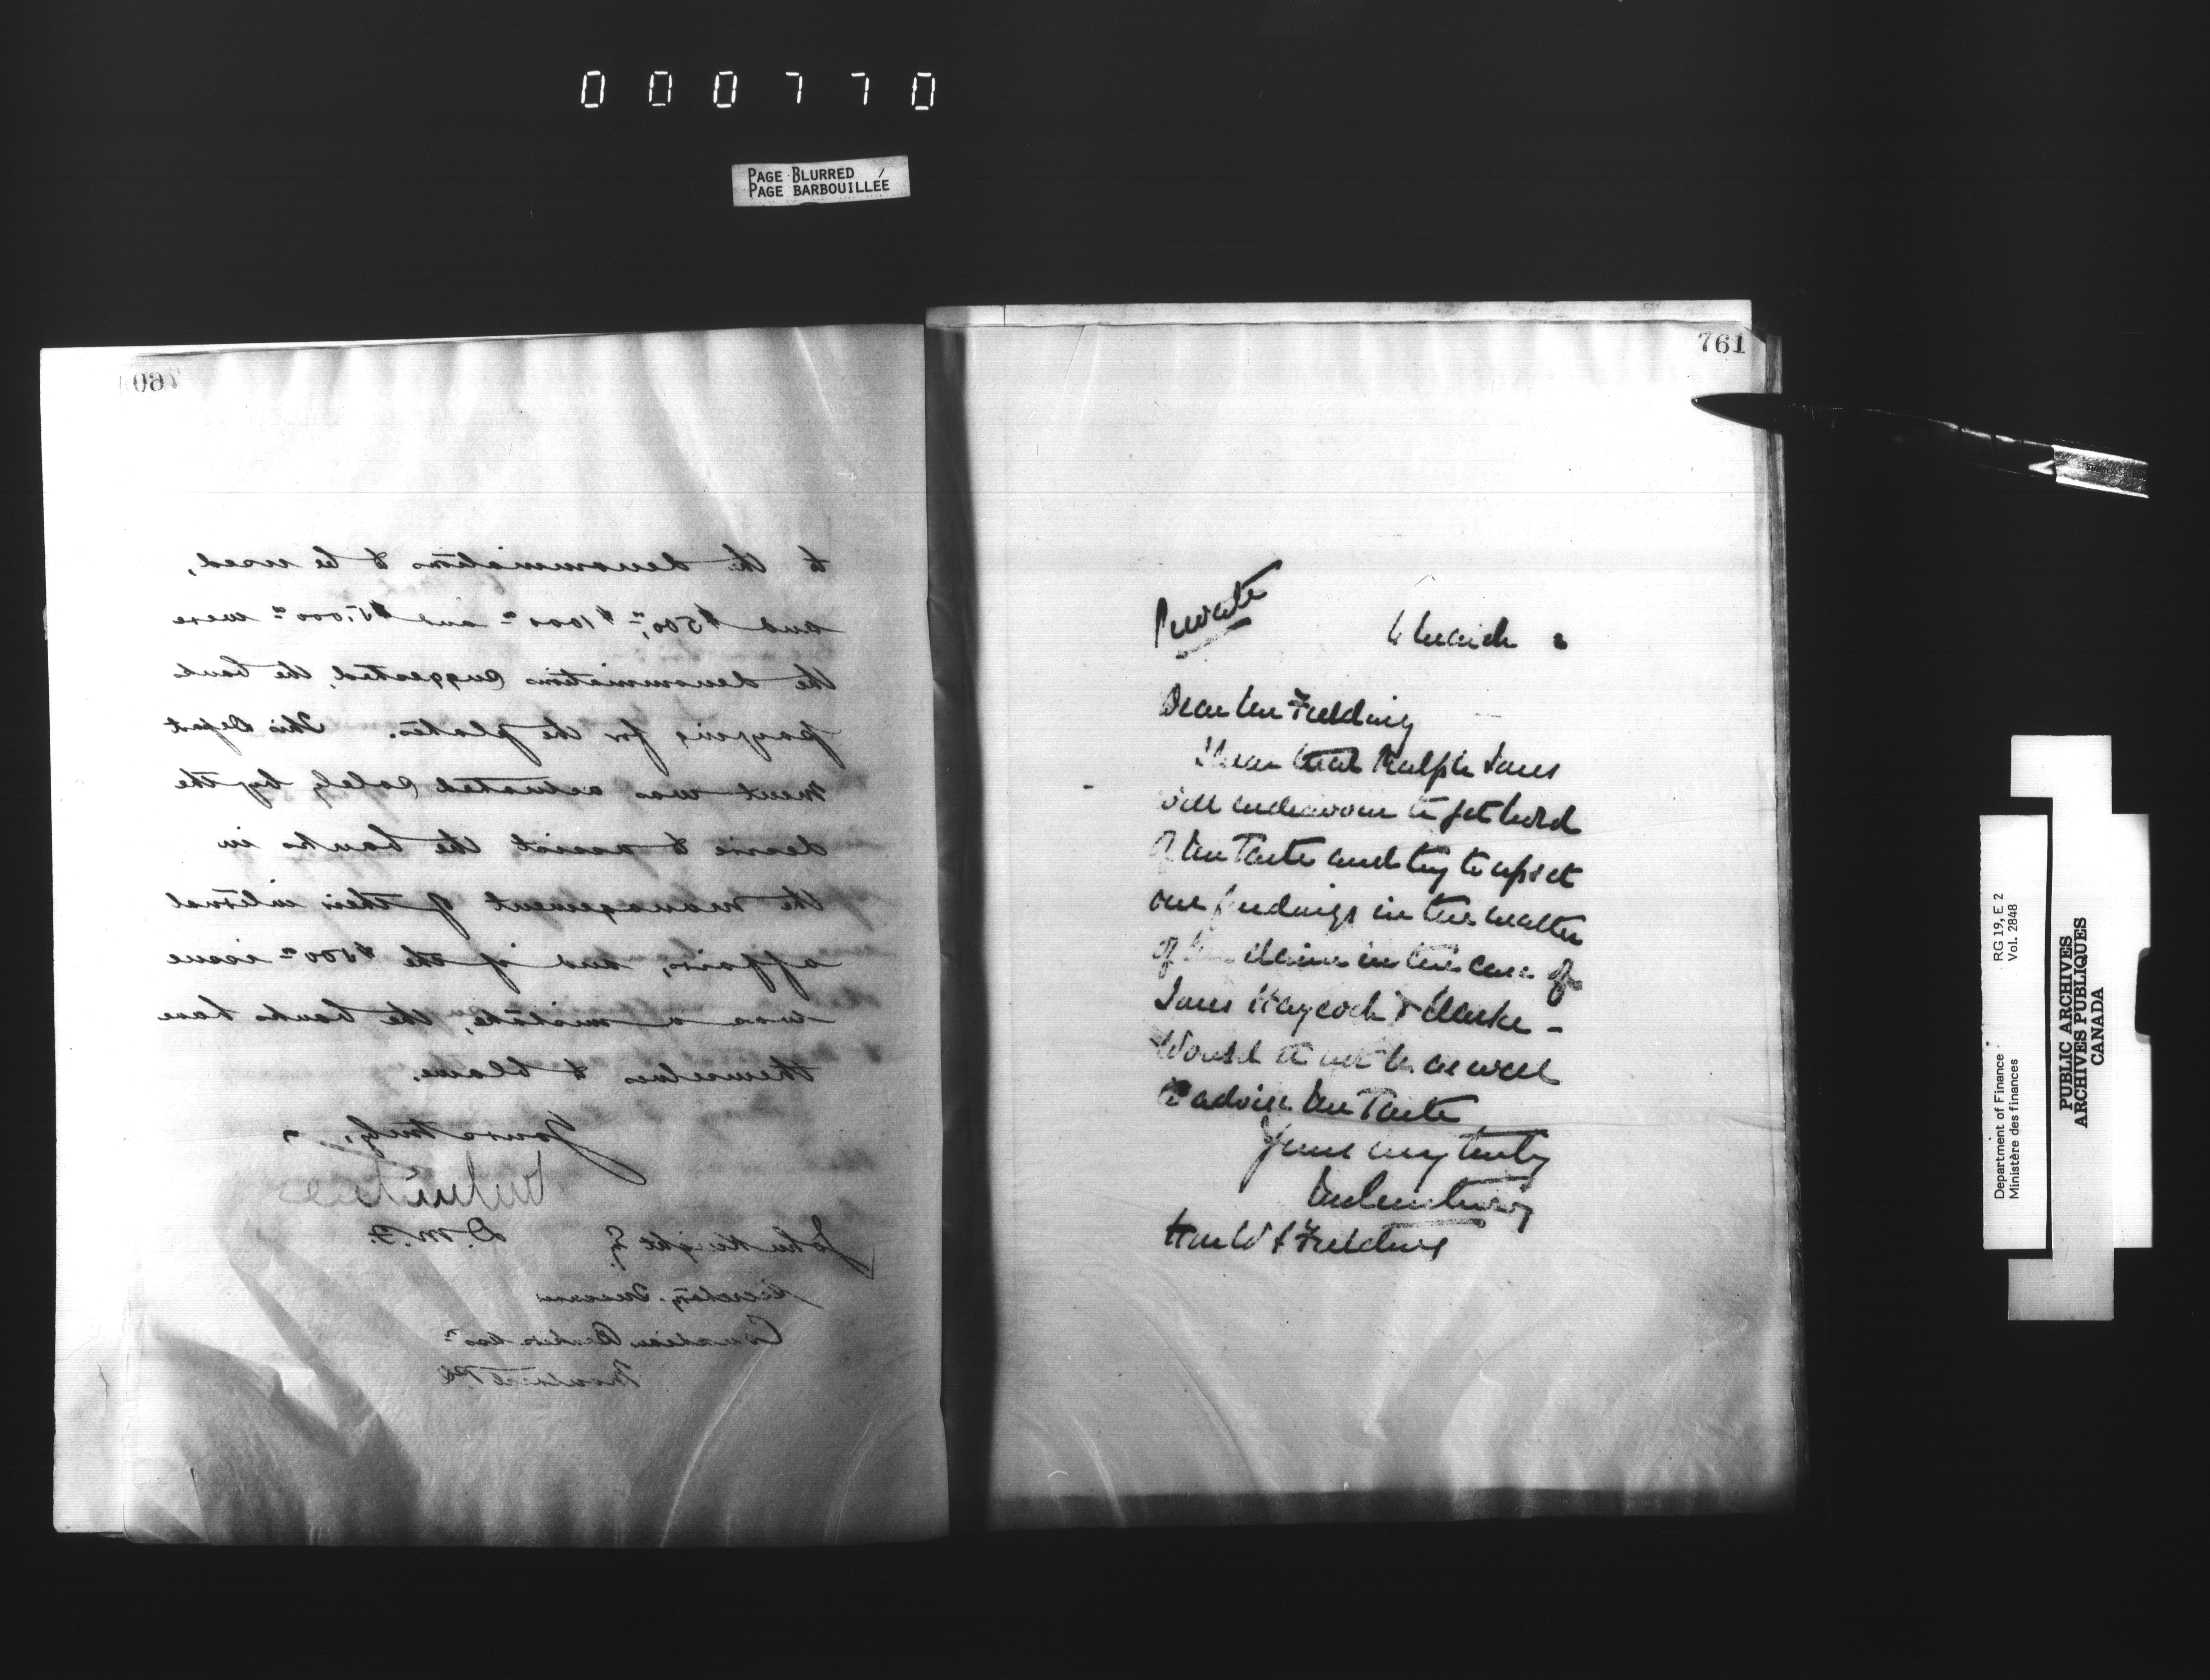 000770
PAGE BLURRED /
PAGE BARBOUILLÉE
760
to the denominations to be used,
and $500,00 $1000 00 and $5,000 00 were
the denominations suggested, the bank
paying for the plates. This Depart
ment was actuated solely by the
desire to assist the banks in
the management of their internal
affairs, and if the $500 00 issue
was a mistake, the banks have
themselves to blame.
Yours truly,
D. M. F.
John Knight Eq.
Secretary Treasurer
Canadian Bankers Assn
Montreal P.Q.
761
Private
6 March
Dear Mr Fielding
I hear that Ralph Jones
will endeavour to get hold
of Mr Tarte and try to upset
our findings in the matter
of claim in the case of
Jones Haycock & Clarke -
Would it not be as well
to advise Mr Tarte
Yours very truly
Hon W S Fielding
Department of Finance RG 19, E 2
Ministère des finances Vol. 2848
PUBLIC ARCHIVES
ARCHIVES PUBLIQUES
CANADA